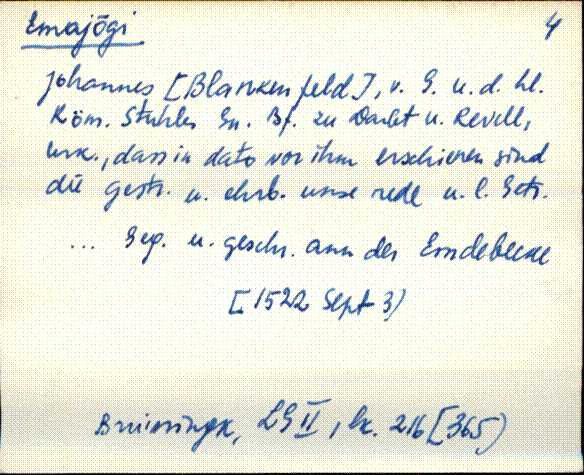 Emajõgi 4
Johannes [Blankenfeld], v. G. u. d. hl.
Röm. Stuhles Gn. Bf. zu Darbt u. Revell,
urk., dass in dato vor ihm erschienen sind
die gestr. u. ehrb. unse rede u. l. Getr.
... Geg. u. geschr. ann der Emdebecke
[1522 Sept 3)
Bruiningk, LG II, lk. 216 [365)